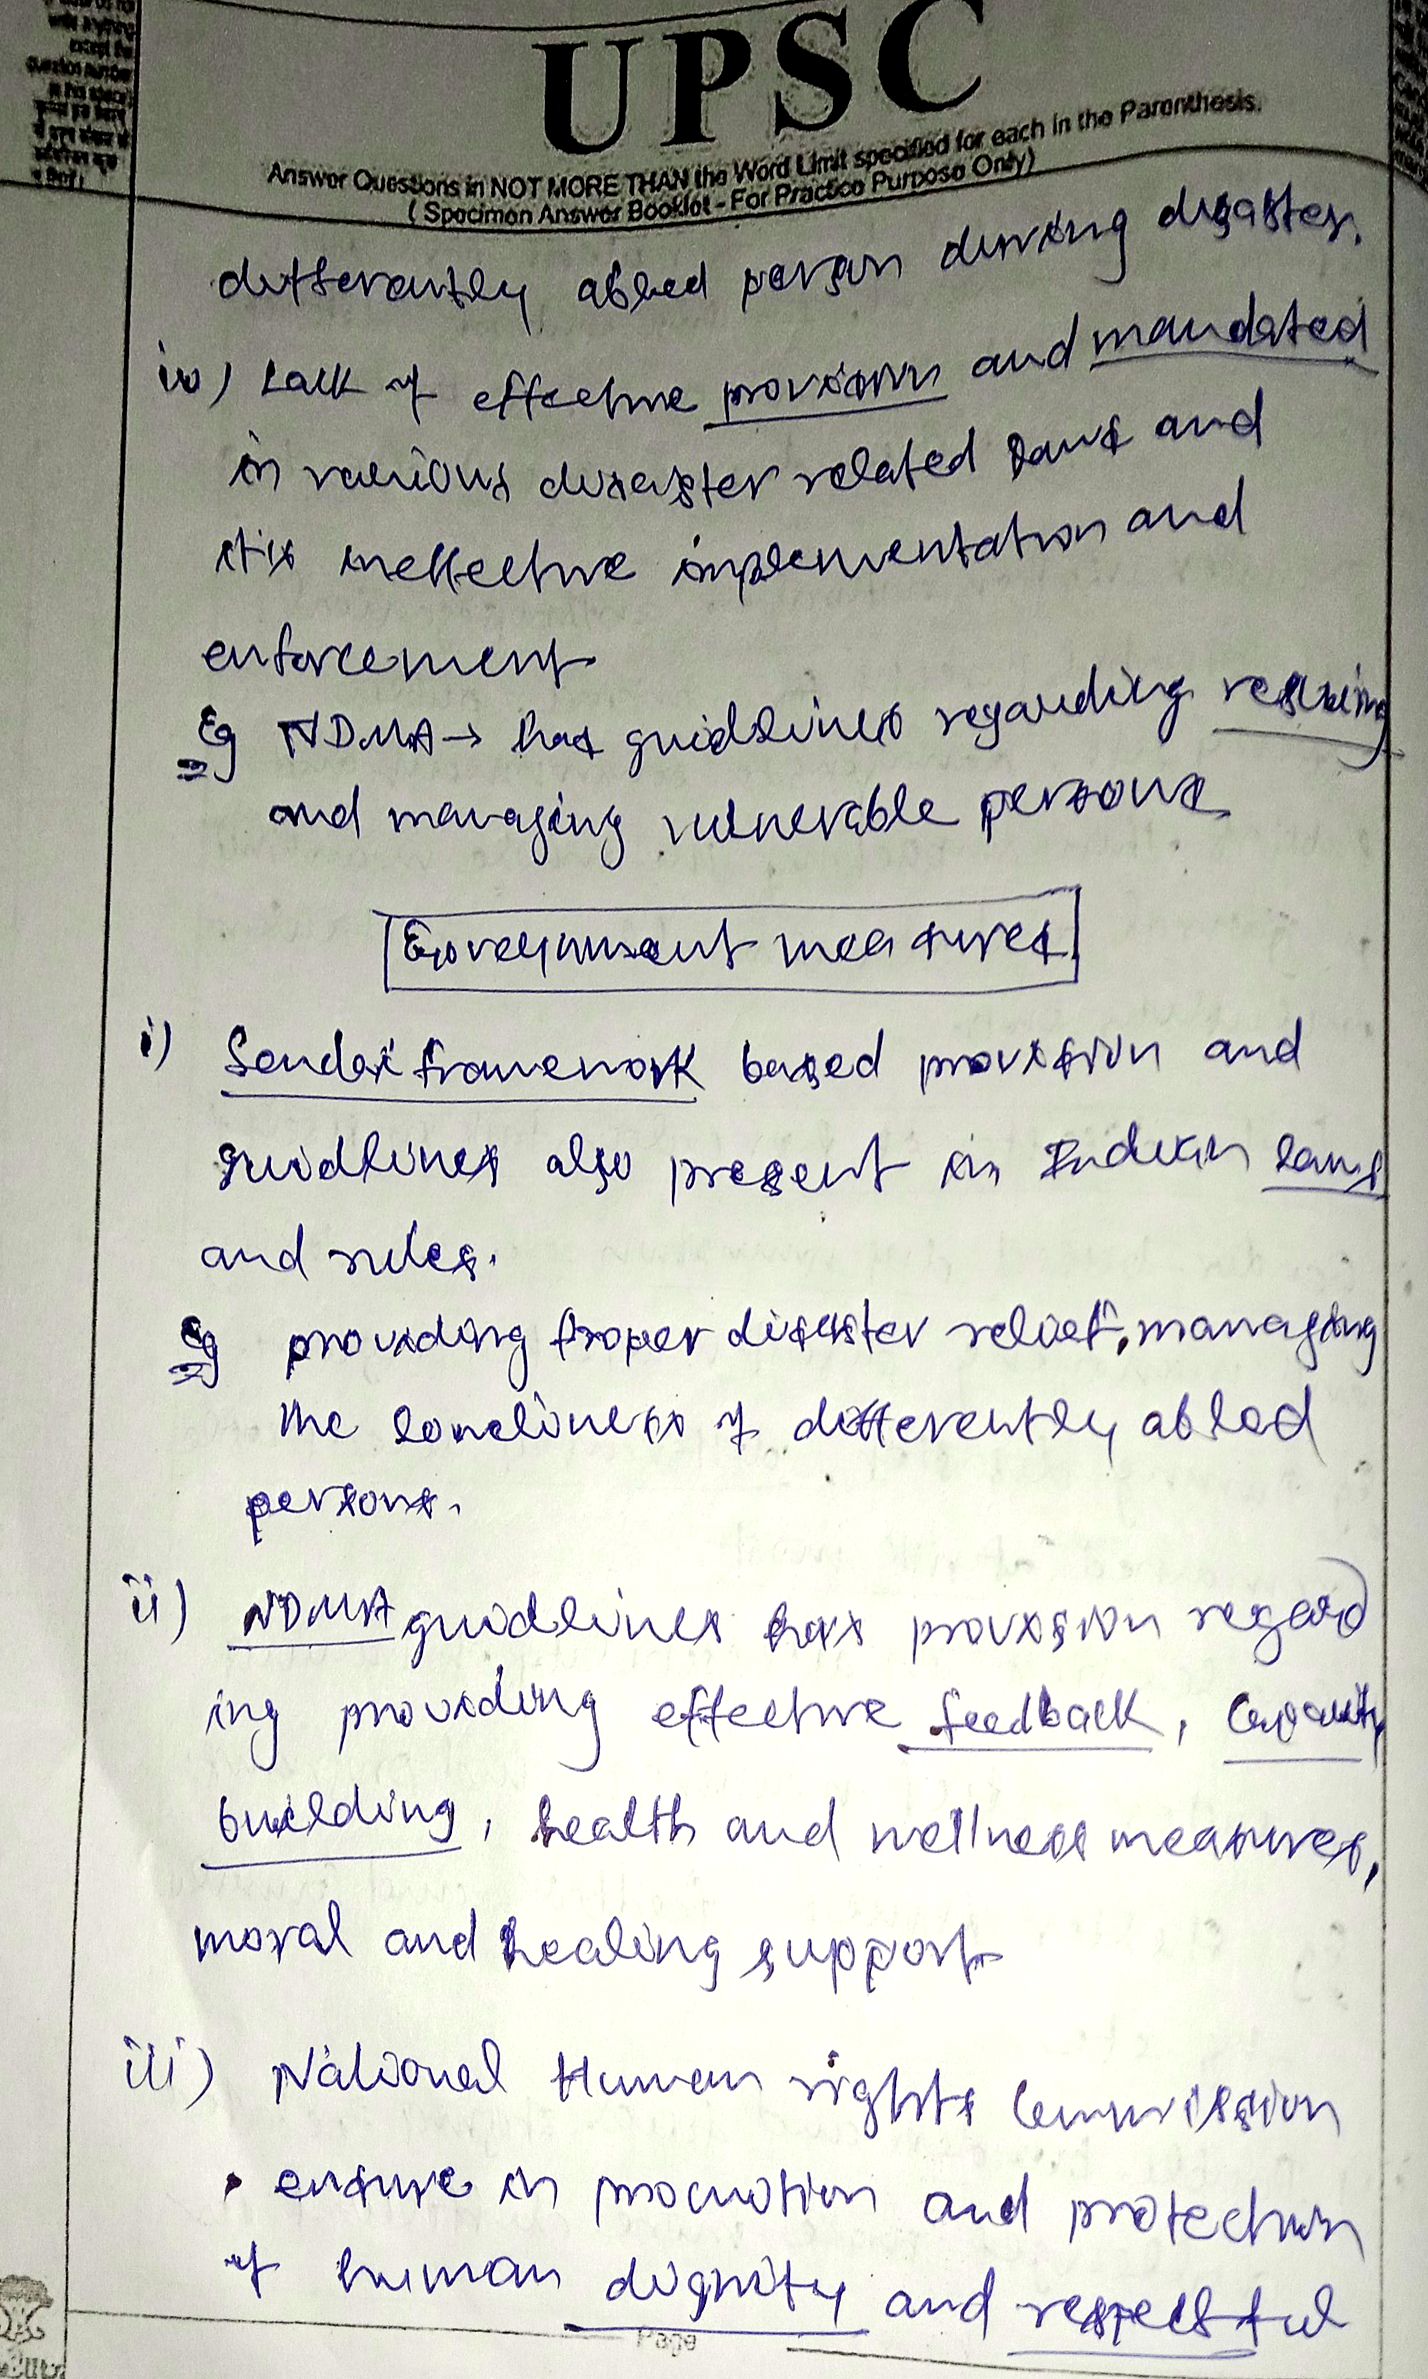 write anything
except the
question number
in this space
UPSC
Answer Questions in NOT MORE THAN the Word Limit specified for each in the Parenthesis.
( Specimen Answer Booklet - For Practice Purpose Only)
differently abled person during disaster.
iv) Lack of effective provision and mandated
in various disaster related laws and
it's ineffective implementation and
enforcement
Eg NDMA → has guidlines regarding rescuing
and managing vulnerable persons
Government measures
i) Sendai framework based provision and
guidlines also present in Indian laws
and rules.
Eg providing proper disaster relief, managing
the loneliness of differently abled
persons.
ii) NDMA guidlines has provision regard
ing providing effective feedback, Capacity
building, health and wellness measures,
moral and healing support
iii) National Human rights Commission
• ensure in promotion and protection
of human dignity and respectful
Page